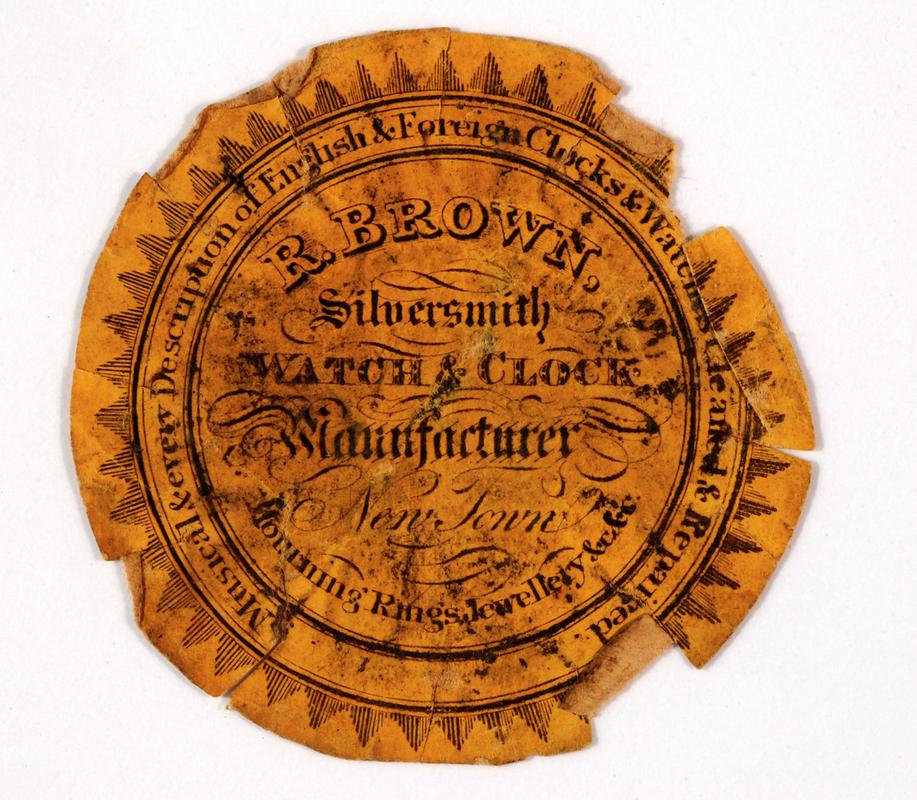 Musical & every Description of English & Foreign Clocks & Watches Cleaned & Repaired
R. BROWN,
Silversmith
WATCH & CLOCK
Manufacturer
New Town
Mourning Rings, Jewellery &c. &c.